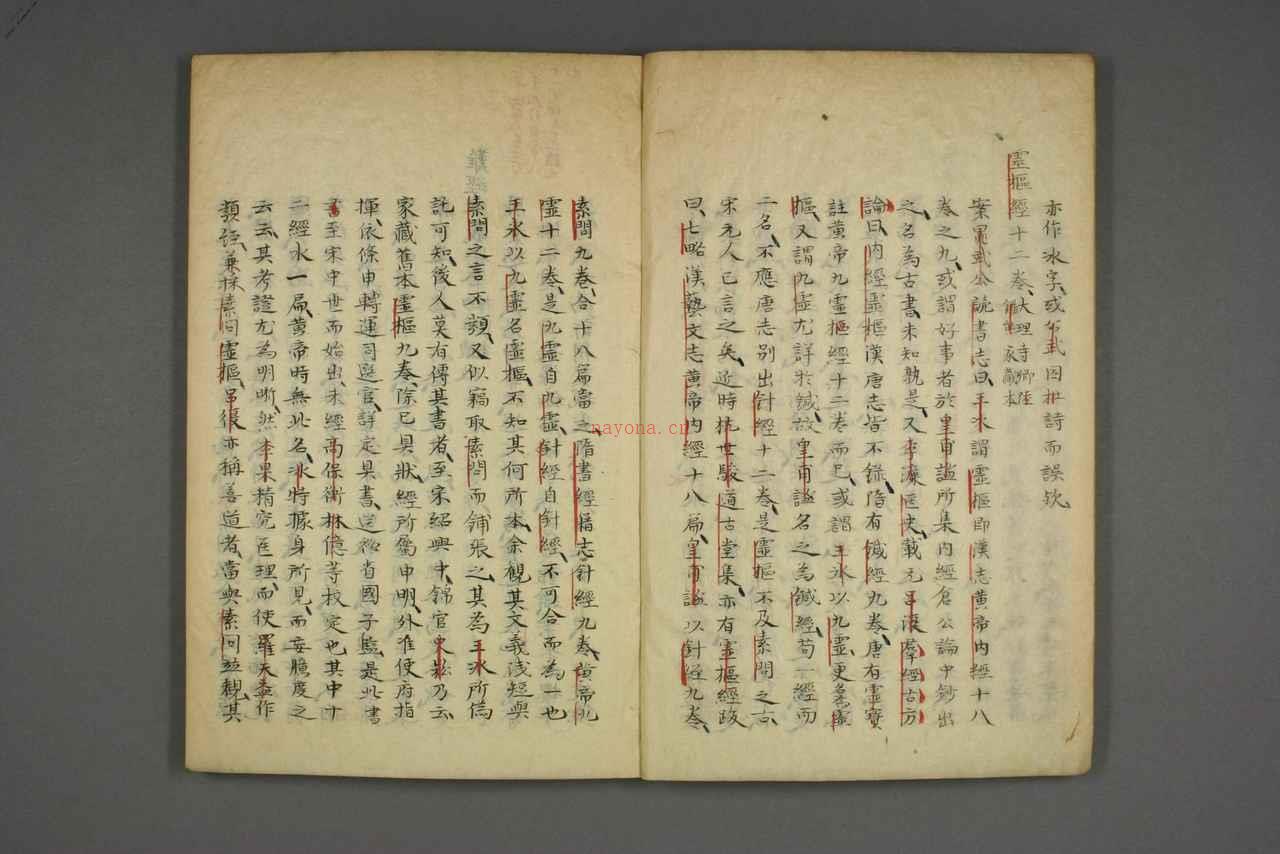 亦作冰字或公武因杜詩而誤欤
靈樞經十二卷大理寺卿陸
錫熊家藏本
案晁武公讀書志曰王冰謂靈樞即漢志黃帝内經十八
卷之九或謂好事者於皇甫謐所集内經倉公論中鈔出
之名為古書未知孰是又李濂医史載元吕滚羣經古方
論曰内經靈樞漢唐志皆不錄隋有鍼經九卷唐有靈寶
註黄帝九靈樞經十二卷而已或謂王冰以九靈更名靈
樞又謂九靈尤詳於鍼故皇甫謐名之為鍼經苟一經而
二名不應唐志别出針經十二卷是靈樞不及素問之古
宋元人已言之矣近時杭世駿道古堂集亦有靈樞經跋
曰七略漢藝文志黄帝内經十八篇皇甫謐以針經九卷
素問九卷合十八篇當之隋書經籍志針經九卷黄帝九
靈十二卷是九靈自九靈針經自針經不可合而為一也
王冰以九靈名靈樞不知其何所本余觀其文義淺短與
素問之言不類又似竊取素問而鋪張之其為王冰所偽
託可知後人莫有傳其書者至宋紹興中錦官史崧乃云
家藏舊本靈樞九卷除已具狀經所屬申明外准使府指
揮依條申轉運司選官詳定具書送祕省國子監是此書
至宋中世而始出未經高保衡林億等校定也其中十
二經水一扁黄帝時無此名冰特據身所見而妄臆度之
云云其考證尤為明晰然李杲精究医理而使羅天益作
類經兼採素问靈樞吕復亦稱善道者當與素问並觀其
難經